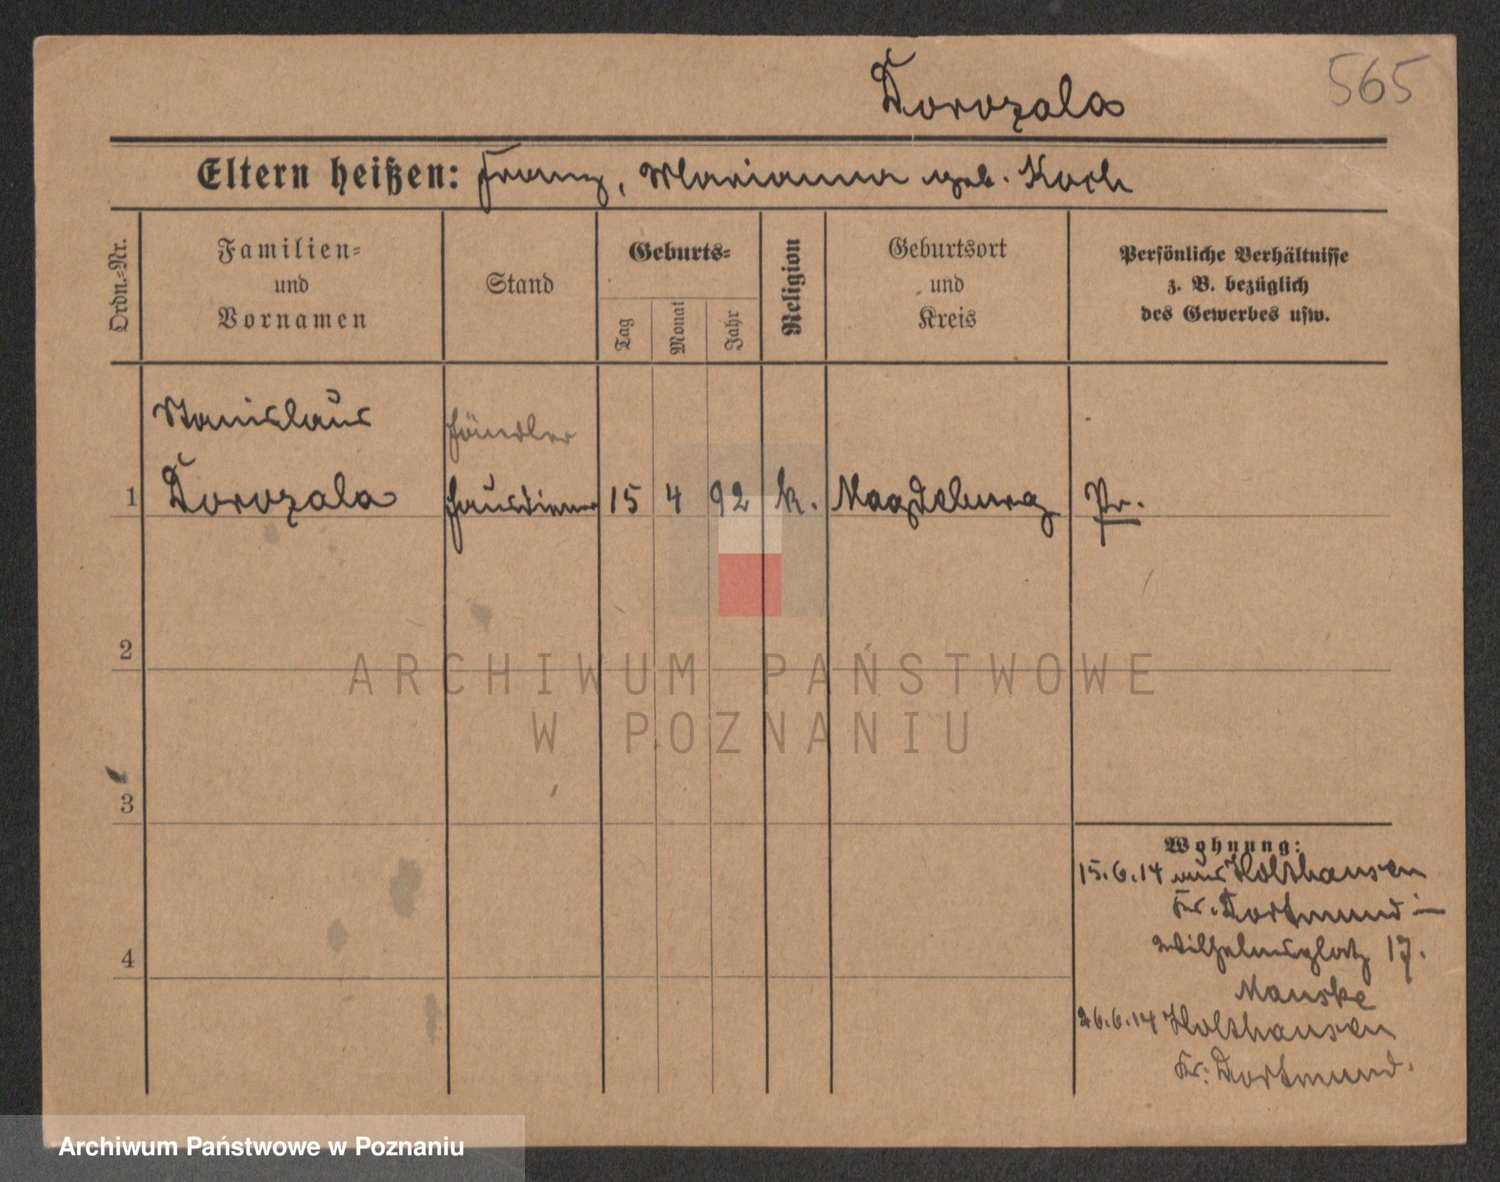 565
Dorozala
Eltern heißen: Franz, Marianna geb. Koch
Ordn.=Nr.
Familien=
und
Vornamen
Stand
Geburts=
Tag
Monat
Jahr
Religion
Geburtsort
und
Kreis
Persönliche Verhältnisse
z. B. bezüglich
des Gewerbes usw.
Stanislaus
Händler
1 Dorozala Hausdiener 15 4 92 k. Magdeburg Pr.
2
ARCHIWUM PAŃSTWOWE
W POZNANIU
3
Wohnung:
15.6.14 aus Holthausen
Kr. Dortmund –
Wilhelmsplatz 17.
Manske
4
26.6.14 Holthausen
Kr. Dortmund.
Archiwum Państwowe w Poznaniu